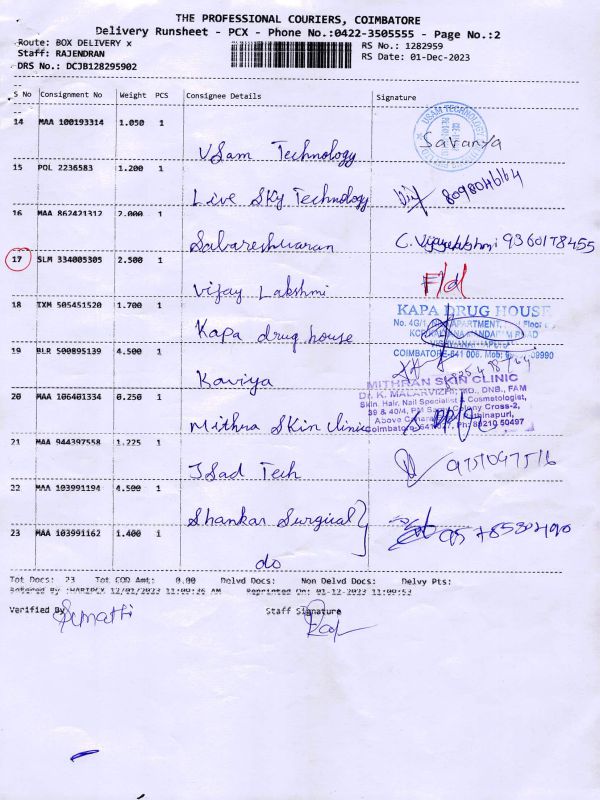 THE PROFESSIONAL COURIERS, COIMBATORE
Delivery Runsheet - PCX - Phone No.:0422-3505555 - Page No.:2
Route: BOX DELIVERY x
RS No.: 1282959
Staff: RAJENDRAN
RS Date: 01-Dec-2023
DRS No.: DCJB128295902
S No Consignment No Weight PCS Consignee Details Signature
14 MAA 100193314 1.050 1
VSam Technology Saranya
15 POL 2236583 1.200 1
Live Sky Technology
16 MAA 862421312 2.000 1
Sabareshwaran C. Vijayalakshmi 9360178455
17 SLM 334005305 2.500 1
Vijay Lakshmi
18 IXM 505451520 1.700 1
Kapa drug house
KAPA DRUG HOUSE
COIMBATORE-641 006.
19 BLR 500895139 4.500 1
Kaviya
20 MAA 106401334 0.250 1
Mithra Skin Clinic
MITHRAN SKIN CLINIC
Dr. K. MALARVIZHI, MD., DNB., FAM
Skin, Hair, Nail Specialist & Cosmetologist,
Ph: 89210 50497
21 MAA 944397558 1.225 1
JSad Tech
22 MAA 103991194 4.500 1
Shankar Surgical
23 MAA 103991162 1.400 1
do
Tot Docs: 23 Tot COD Amt: 0.00 Delvd Docs: Non Delvd Docs: Delvy Pts:
Entered By :HARIPCX 12/01/2023 11:09:36 AM Reprinted On: 01-12-2023 11:09:53
Verified By Staff Signature